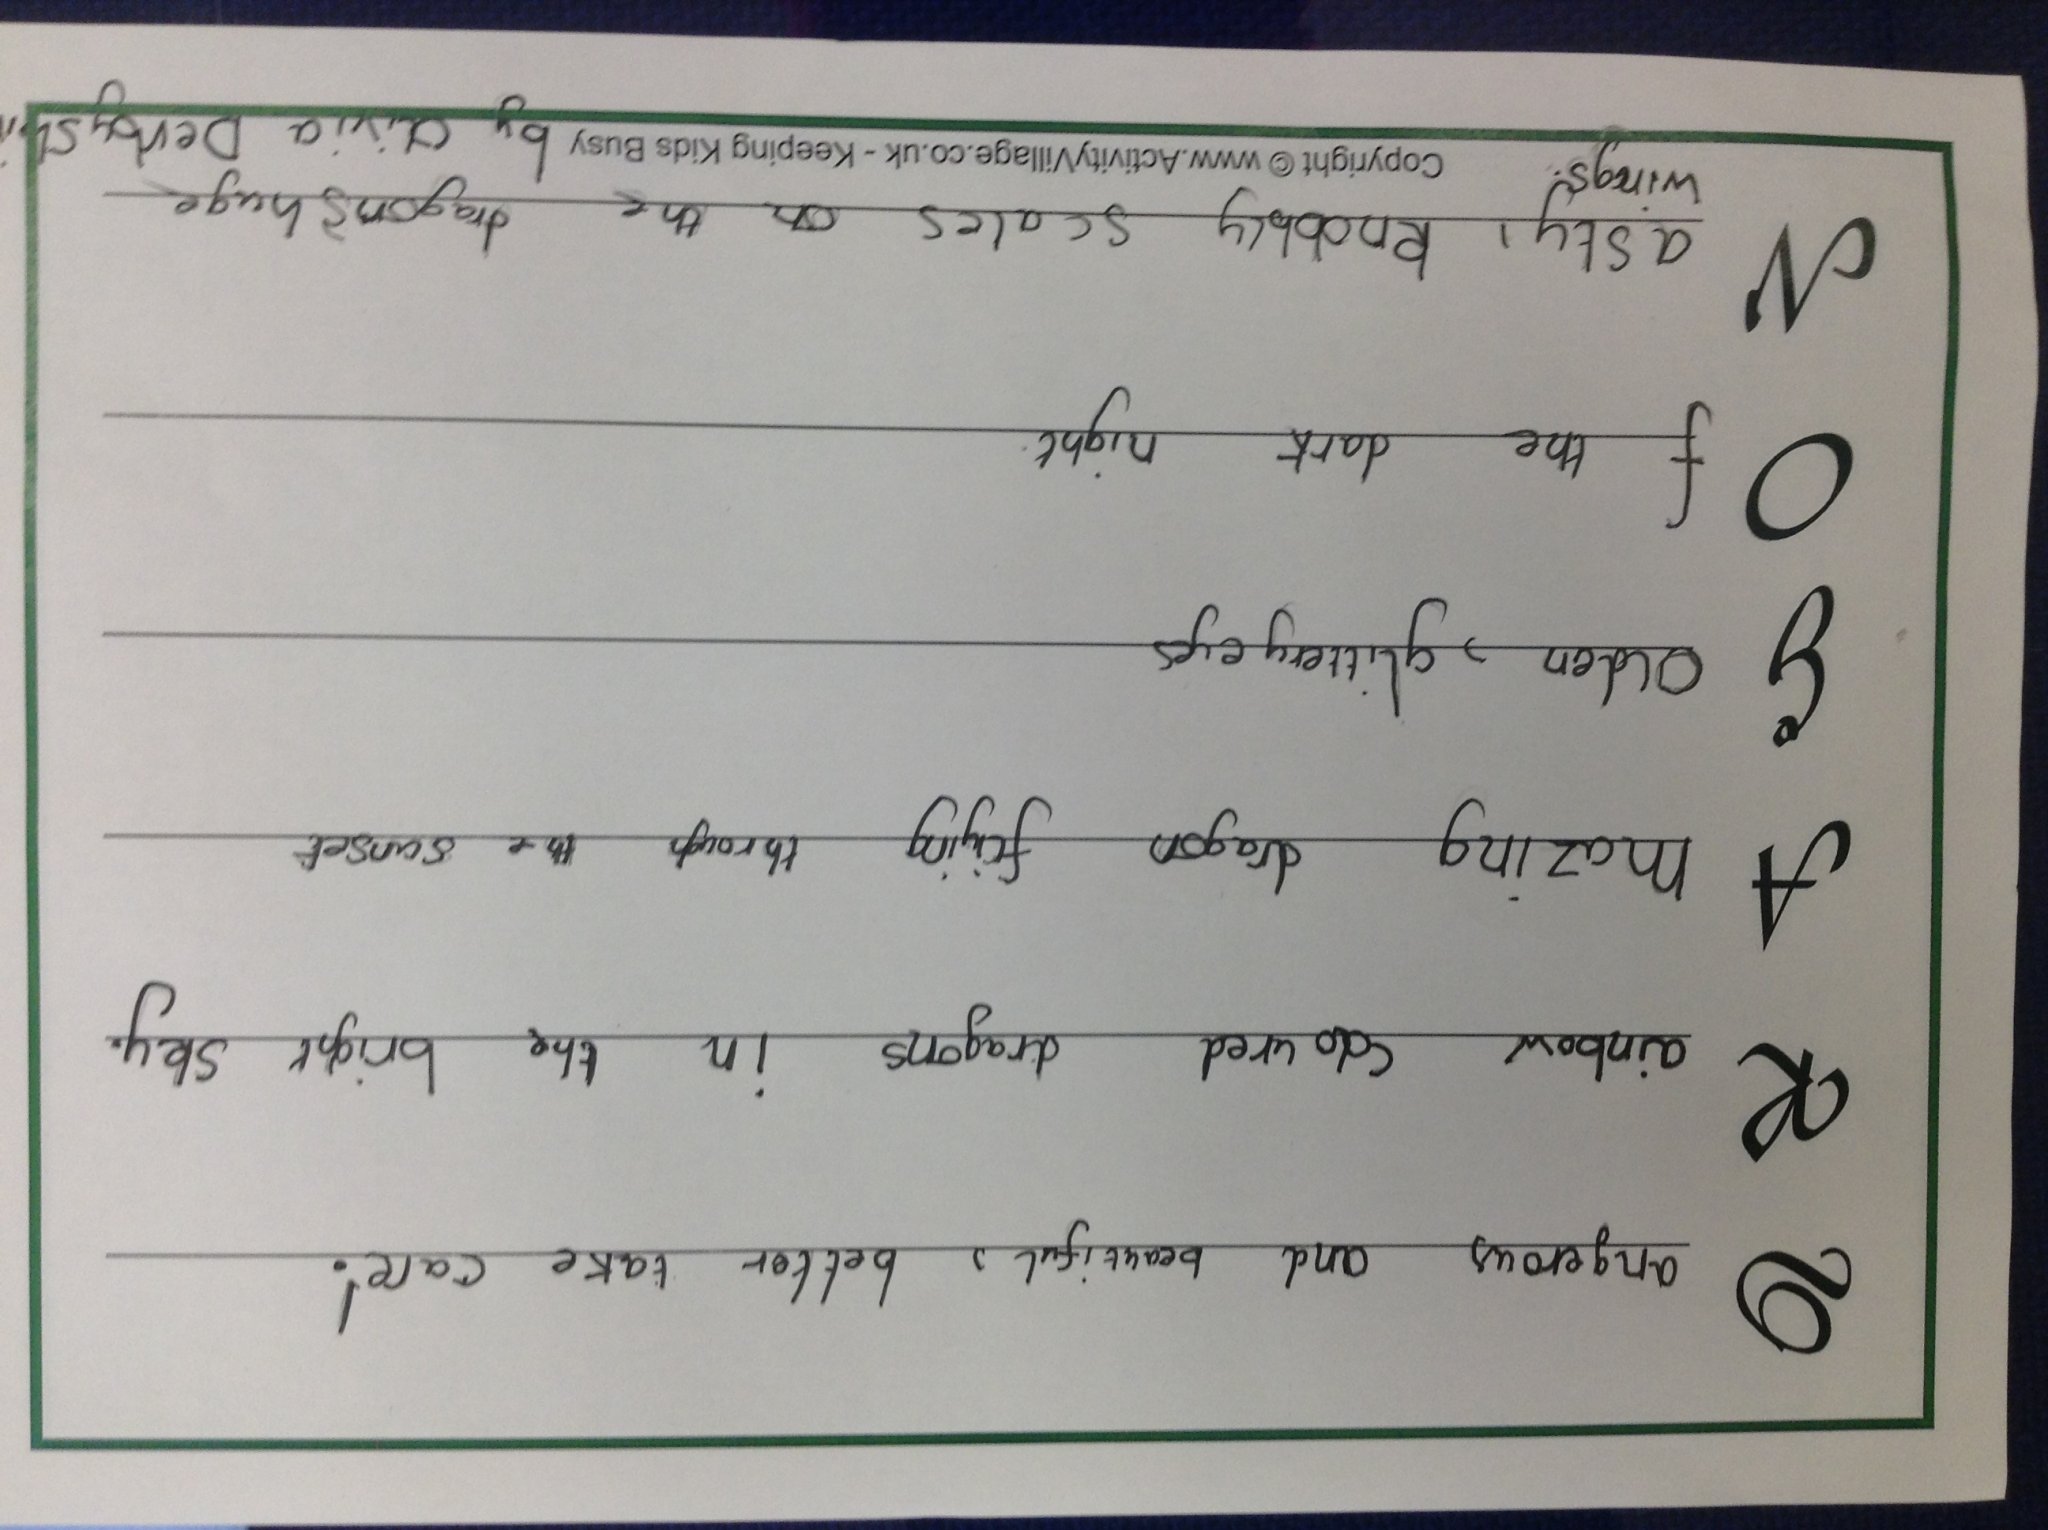 Dangerous and beautiful, better take care!
Rainbow coloured dragons in the bright sky.
Amazing dragon flying through the sunset
Golden, glittery eyes
Of the dark night.
Nasty, knobbly scales on the dragons huge
wings.
Copyright © www.ActivityVillage.co.uk - Keeping Kids Busy by Olivia